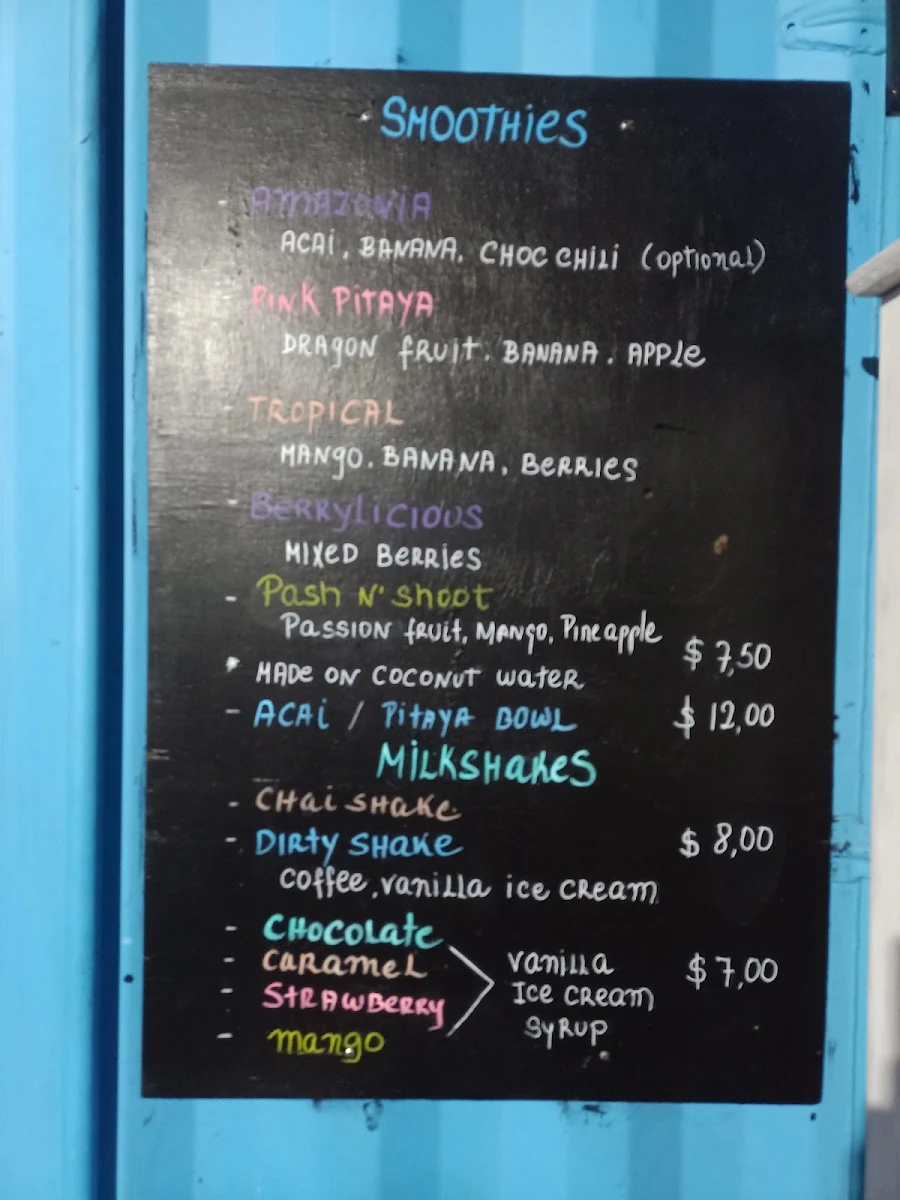 SMOOTHIES
- AMAZONIA
ACAI, BANANA, CHOC CHILI (optional)
- PINK PITAYA
DRAGON FRUIT. BANANA. APPLE
- TROPICAL
MANGO. BANANA, BERRIES
- BERRYLICIOUS
MIXED BERRIES
- Pash N' Shoot
PASSION fruit, MANGO, Pineapple
$ 7,50
* MADE ON COCONUT water
- ACAI / PITAYA BOWL $ 12,00
MILKSHAKES
- CHAI SHAKE
- DIRTY SHAKE $ 8,00
coffee, vanilla ice cream
- CHOCOLATE
- CARAMEL
- STRAWBERRY
- mango
vanilla
Ice cream
syrup
$ 7,00